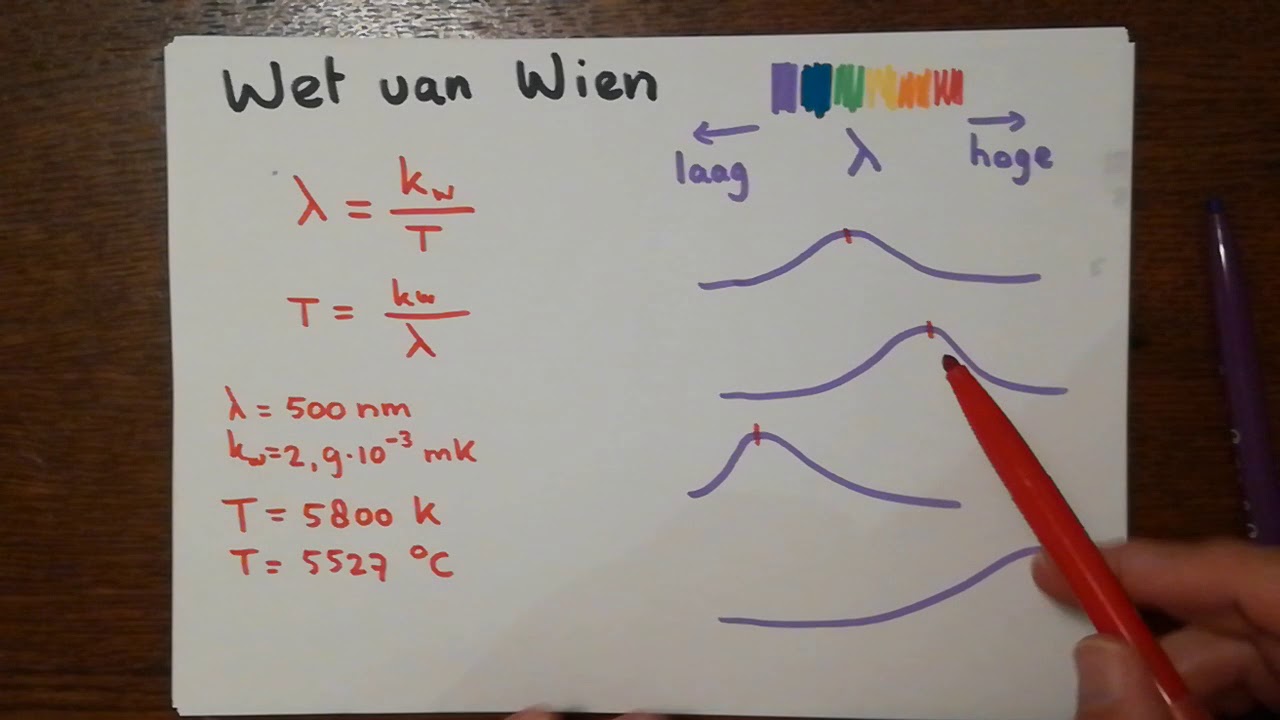 Wet van Wien
λ = kw / T
T = kw / λ
λ = 500 nm
kw = 2,9·10⁻³ mK
T = 5800 K
T = 5527 °C
← laag λ hoge →